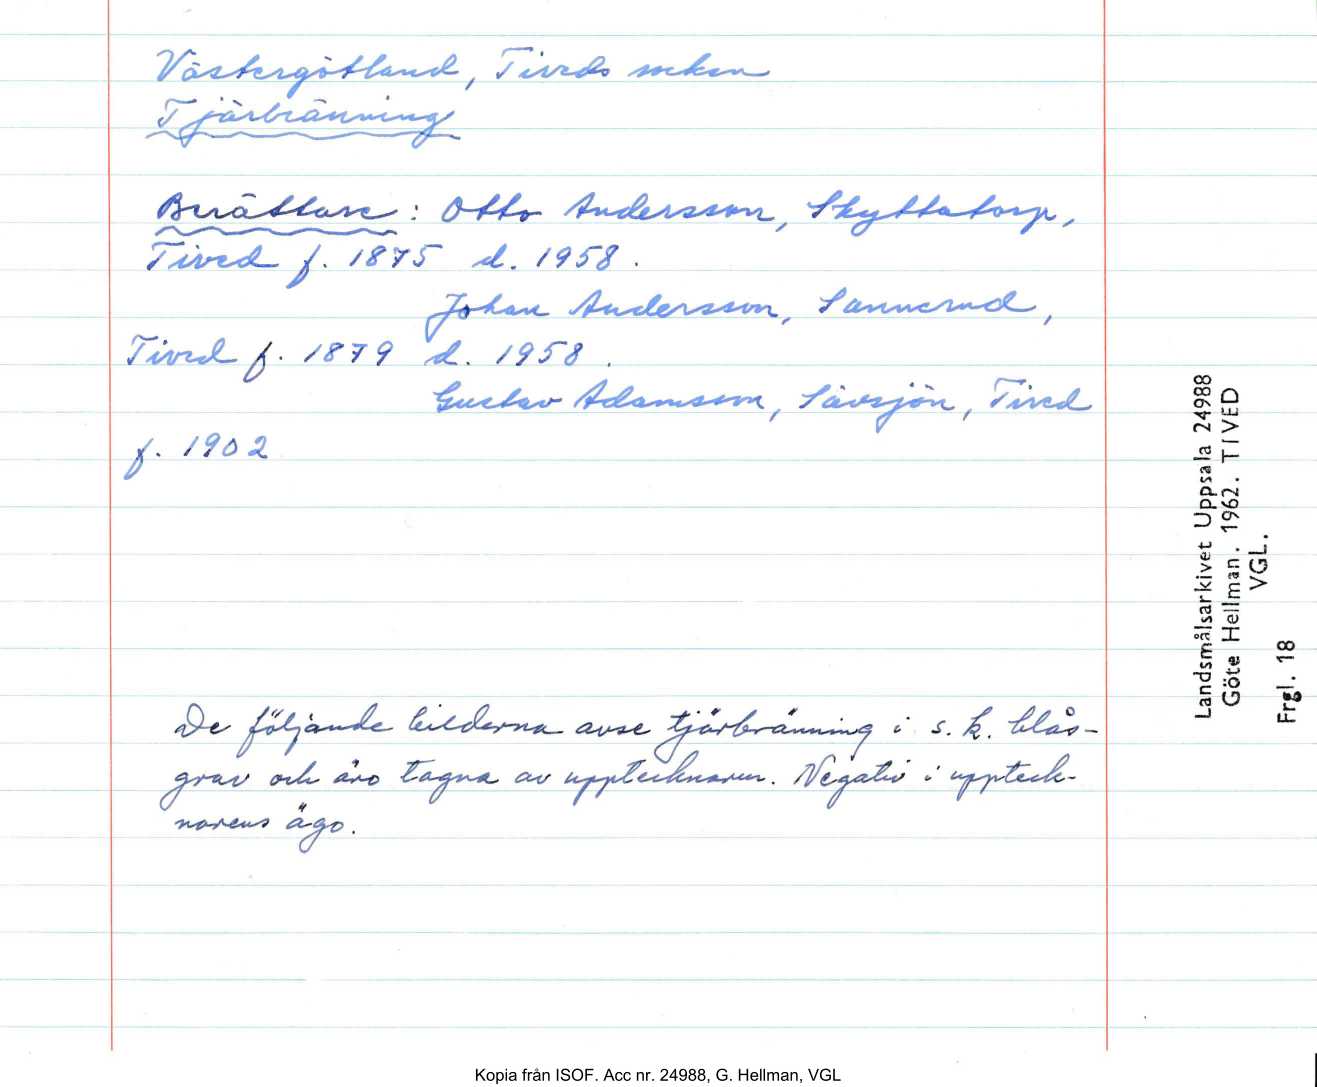 Västergötland, Tiveds socken
Tjärbränning
Berättare: Otto Andersson, Skyttatorp,
Tived f. 1875 d. 1958.
Johan Andersson, Sannerud,
Tived f. 1879 d. 1958.
Gustav Adamsson, Sävsjön, Tived
f. 1902
De följande bilderna avse tjärbränning i s.k. blås-
grav och äro tagna av upptecknaren. Negativ i uppteck-
narens ägo.
Landsmålsarkivet Uppsala 24988
Göte Hellman. 1962. TIVED
VGL.
Frgl. 18
Kopia från ISOF. Acc nr. 24988, G. Hellman, VGL